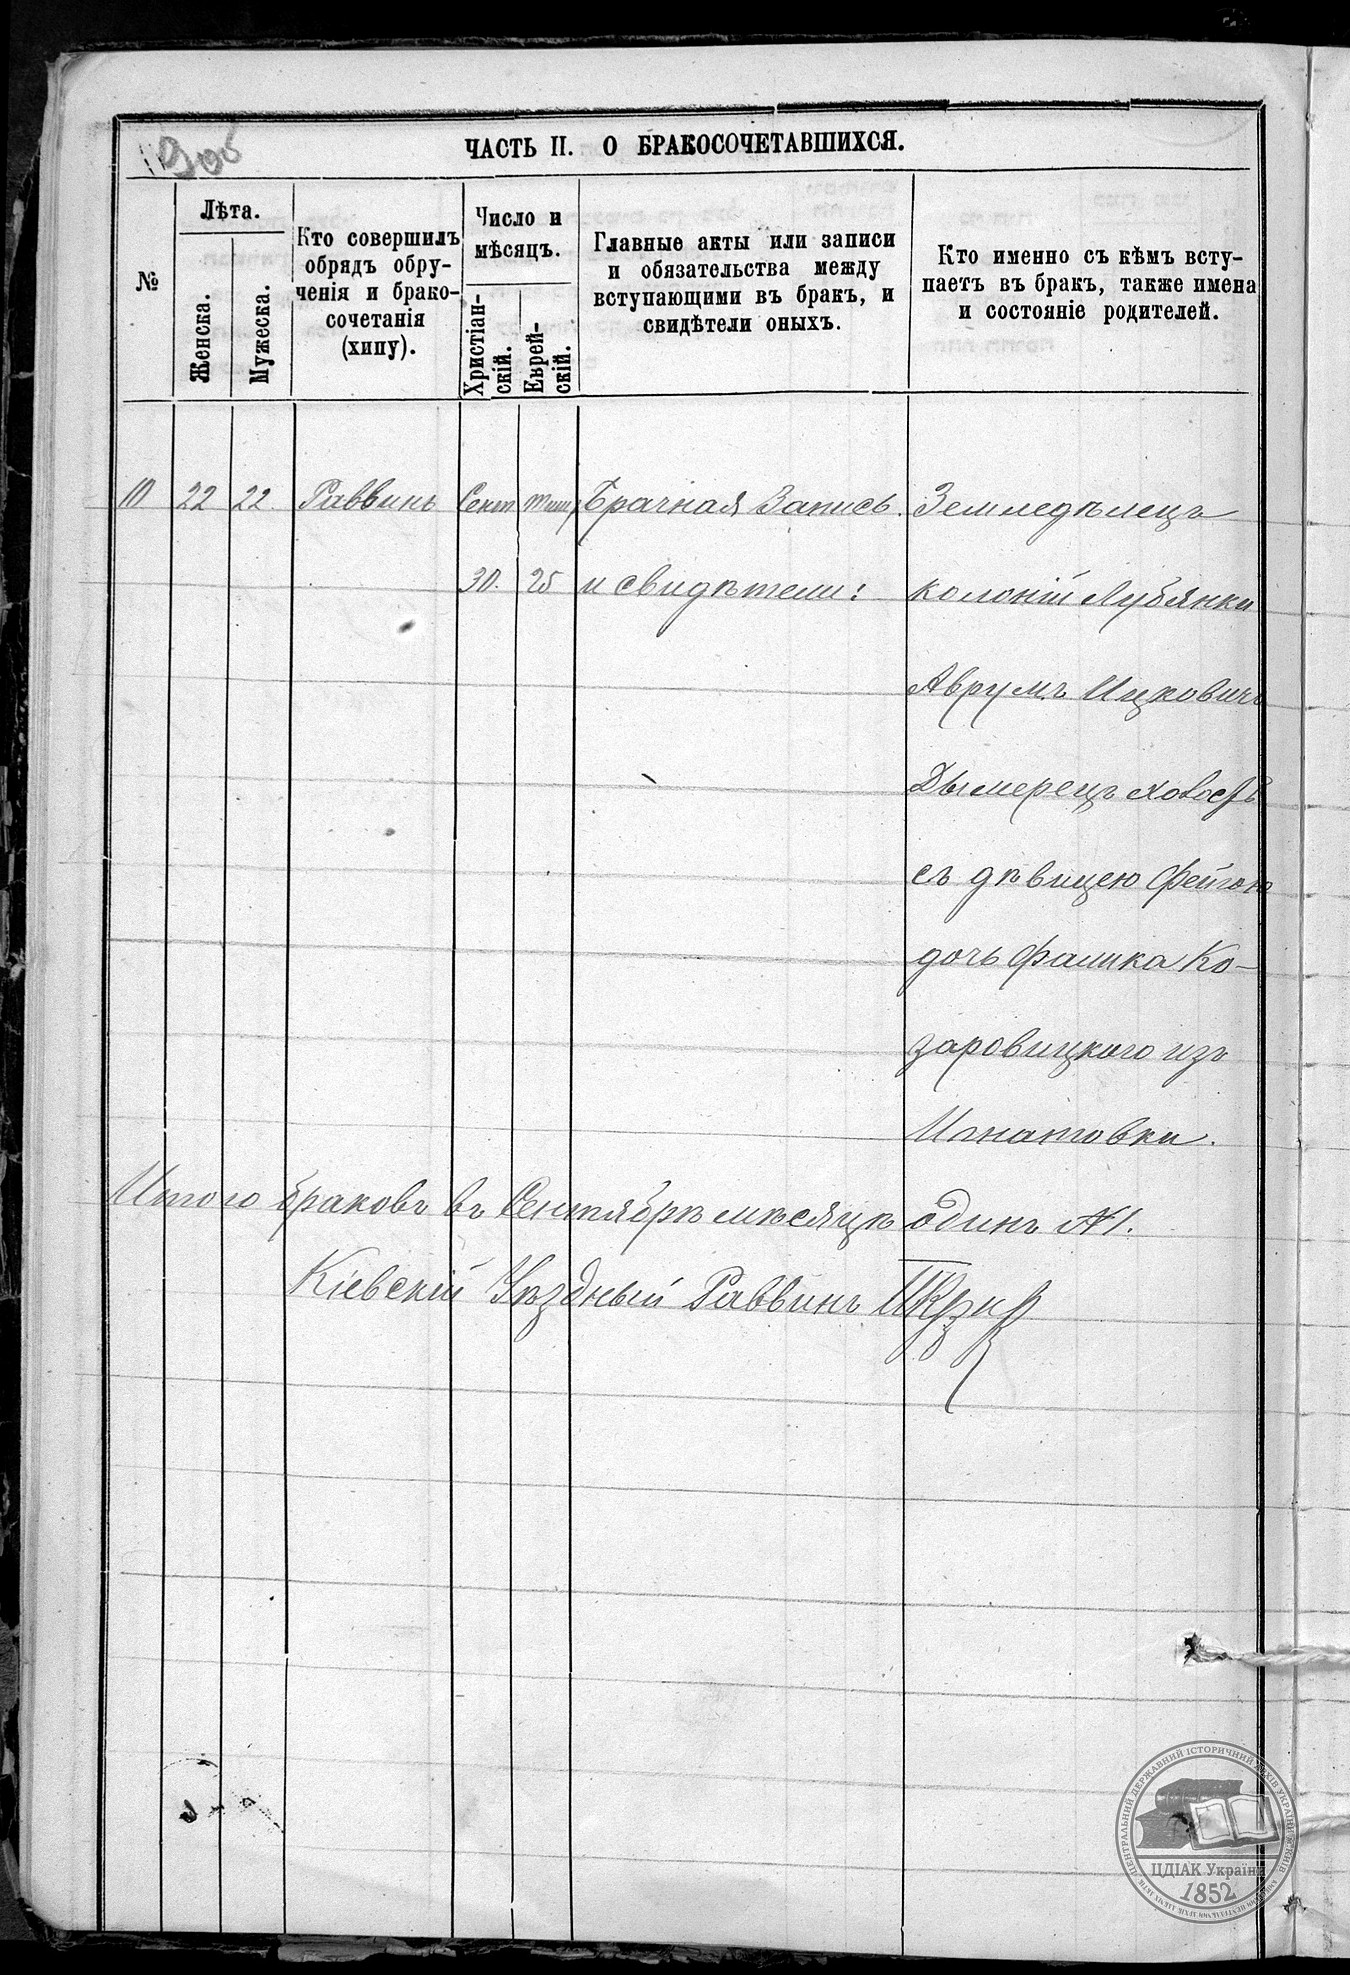 ЧАСТЬ II. О БРАКОСОЧЕТАВШИХСЯ.
№
Лѣта.
Женска.
Мужеска.
Кто совершилъ
обрядъ обру-
ченія и брако-
сочетанія
(хипу).
Число и
мѣсяцъ.
Христіан-
скій.
Еврей-
скій.
Главные акты или записи
и обязательства между
вступающими въ бракъ, и
свидѣтели оныхъ.
Кто именно съ кѣмъ всту-
паетъ въ бракъ, также имена
и состояніе родителей.
10 22 22. Раввинъ Сент. Тиш. Брачная Запись Земледѣлецъ
30. 25 и свидѣтели: колоніи Лубянки
Аврумъ Ицковичъ
Дымерецъ холост.
съ дѣвицею Фейгою
дочь Фалика Ко-
заровицкого изъ
Игнатовки.
Итого браковъ въ Сентябрѣ мѣсяцѣ одинъ №1.
Кіевскій Уѣздный Раввинъ
ЦЕНТРАЛЬНИЙ ДЕРЖАВНИЙ ІСТОРИЧНИЙ АРХІВ УКРАЇНИ, М.КИЇВ
ЦДІАК України
1852